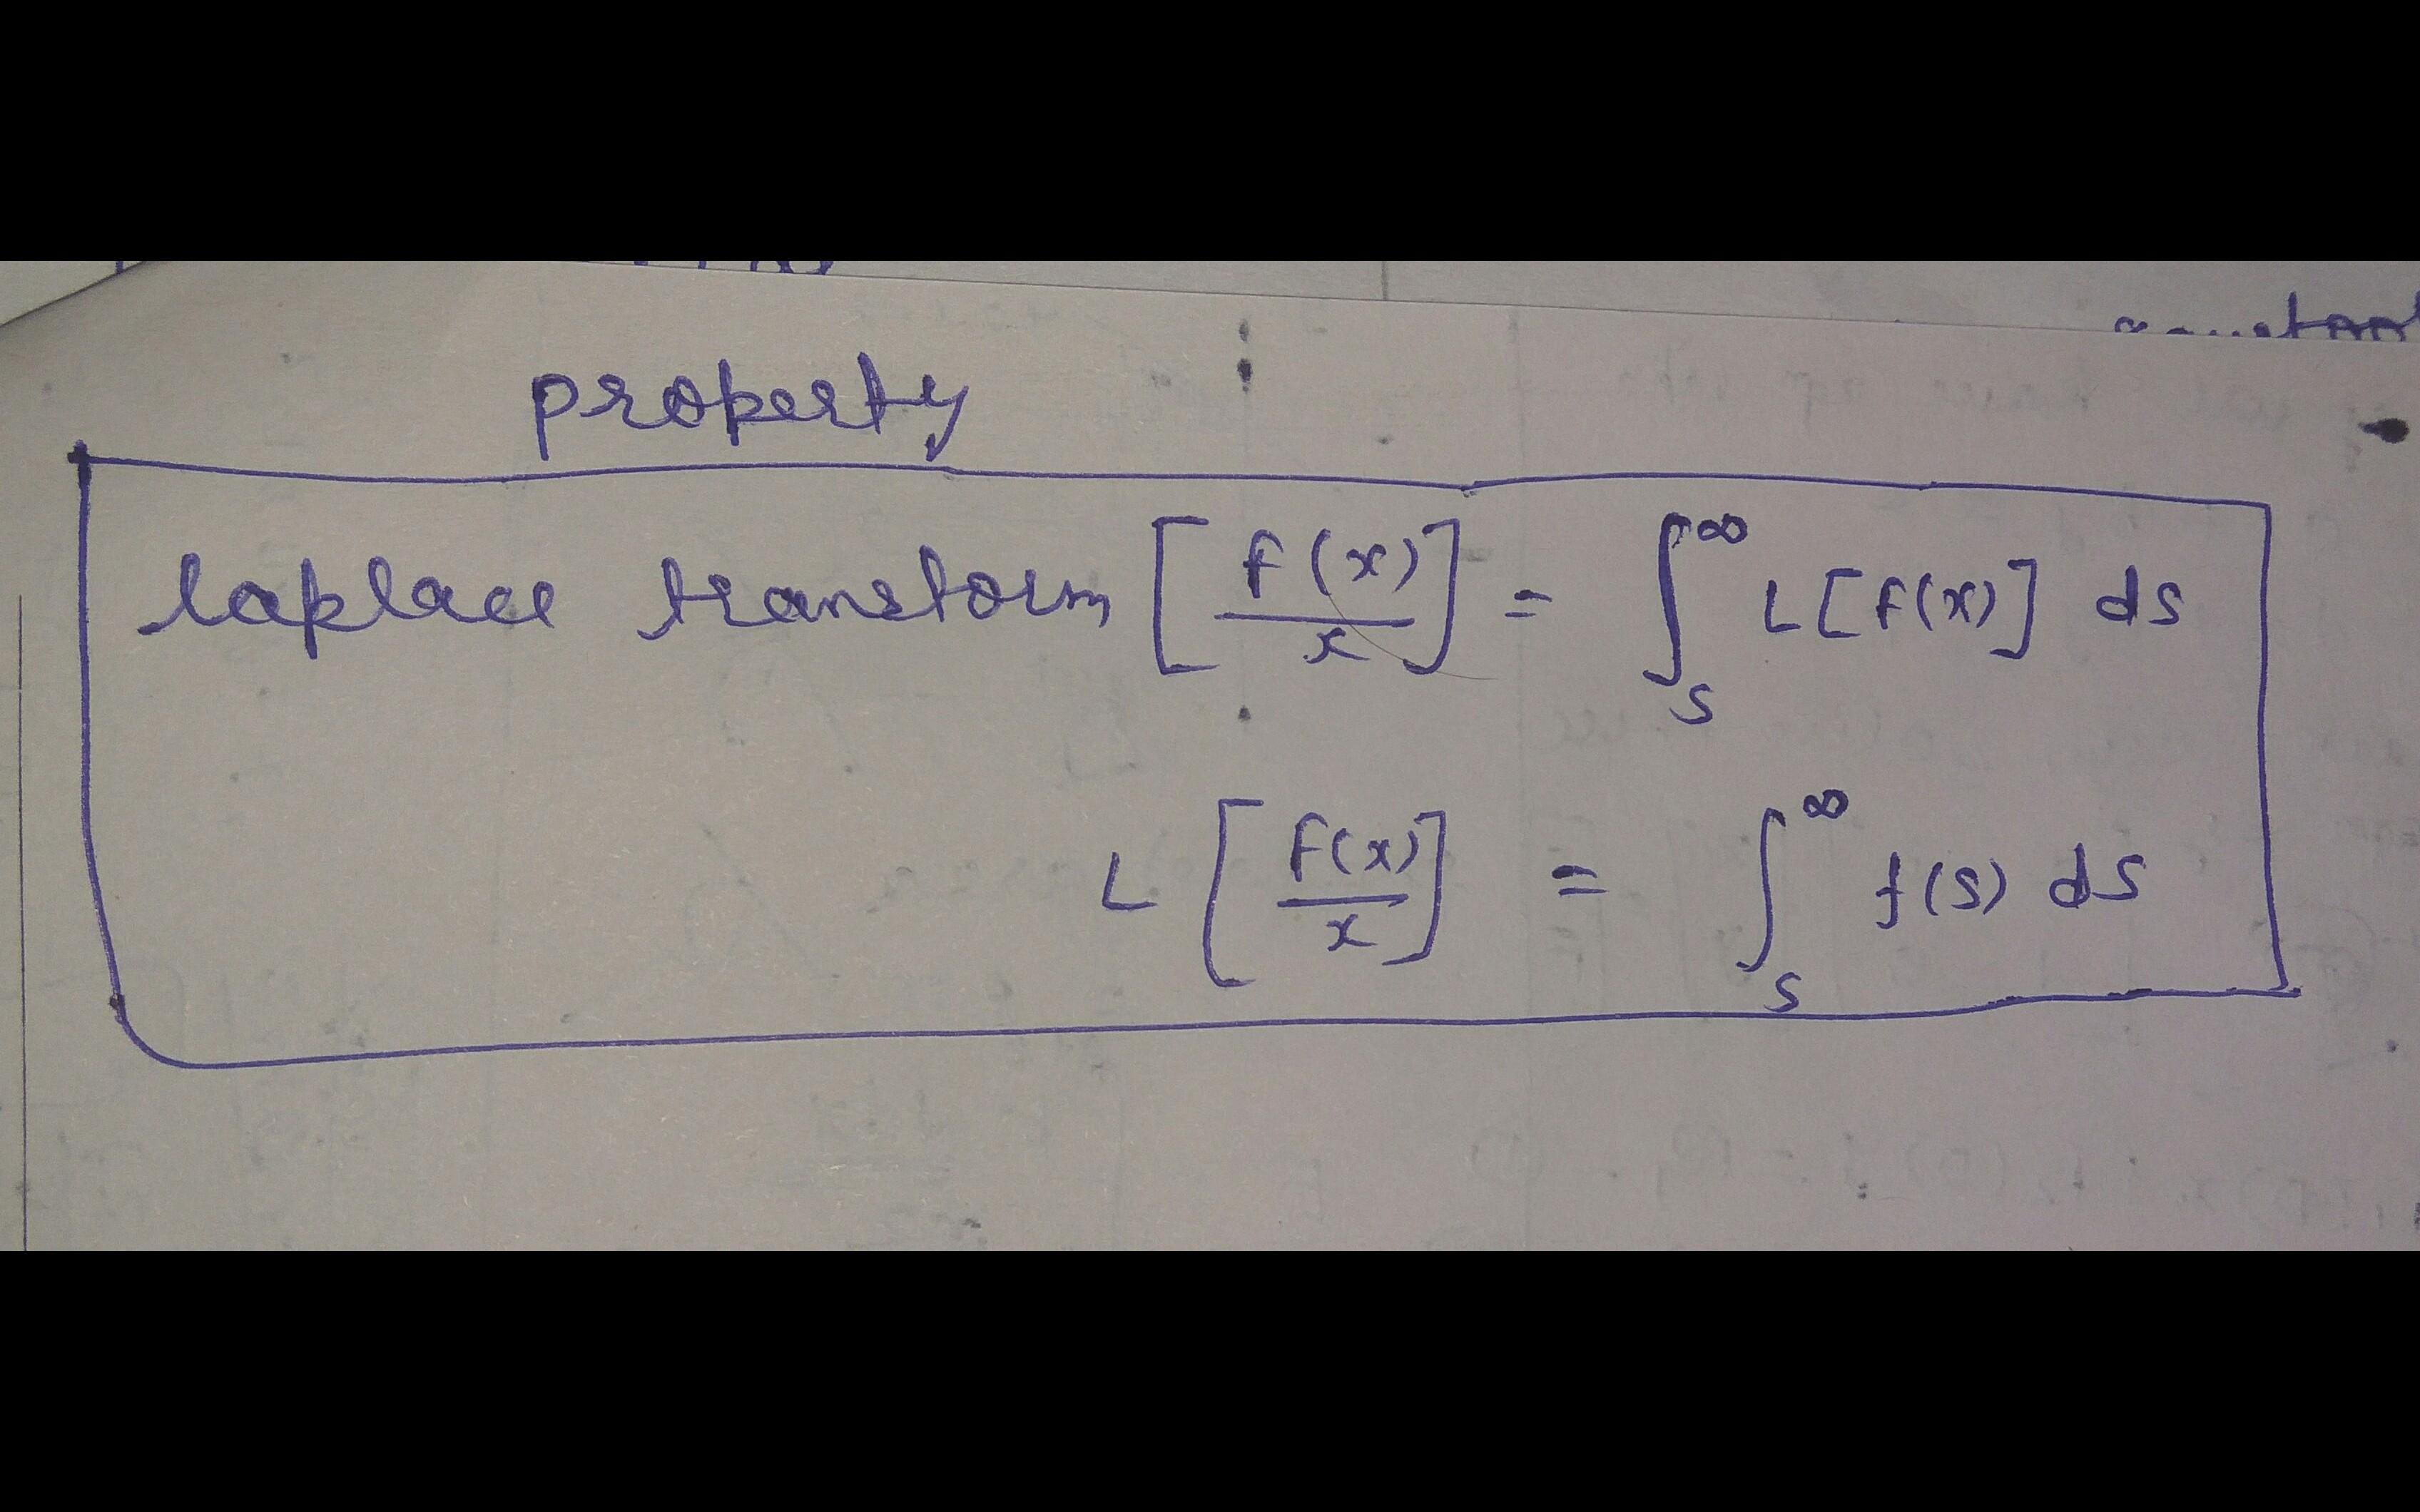 property
laplace transform [F(x)/x] = ∫_s^∞ L[F(x)] ds
L [F(x)/x] = ∫_s^∞ f(s) ds